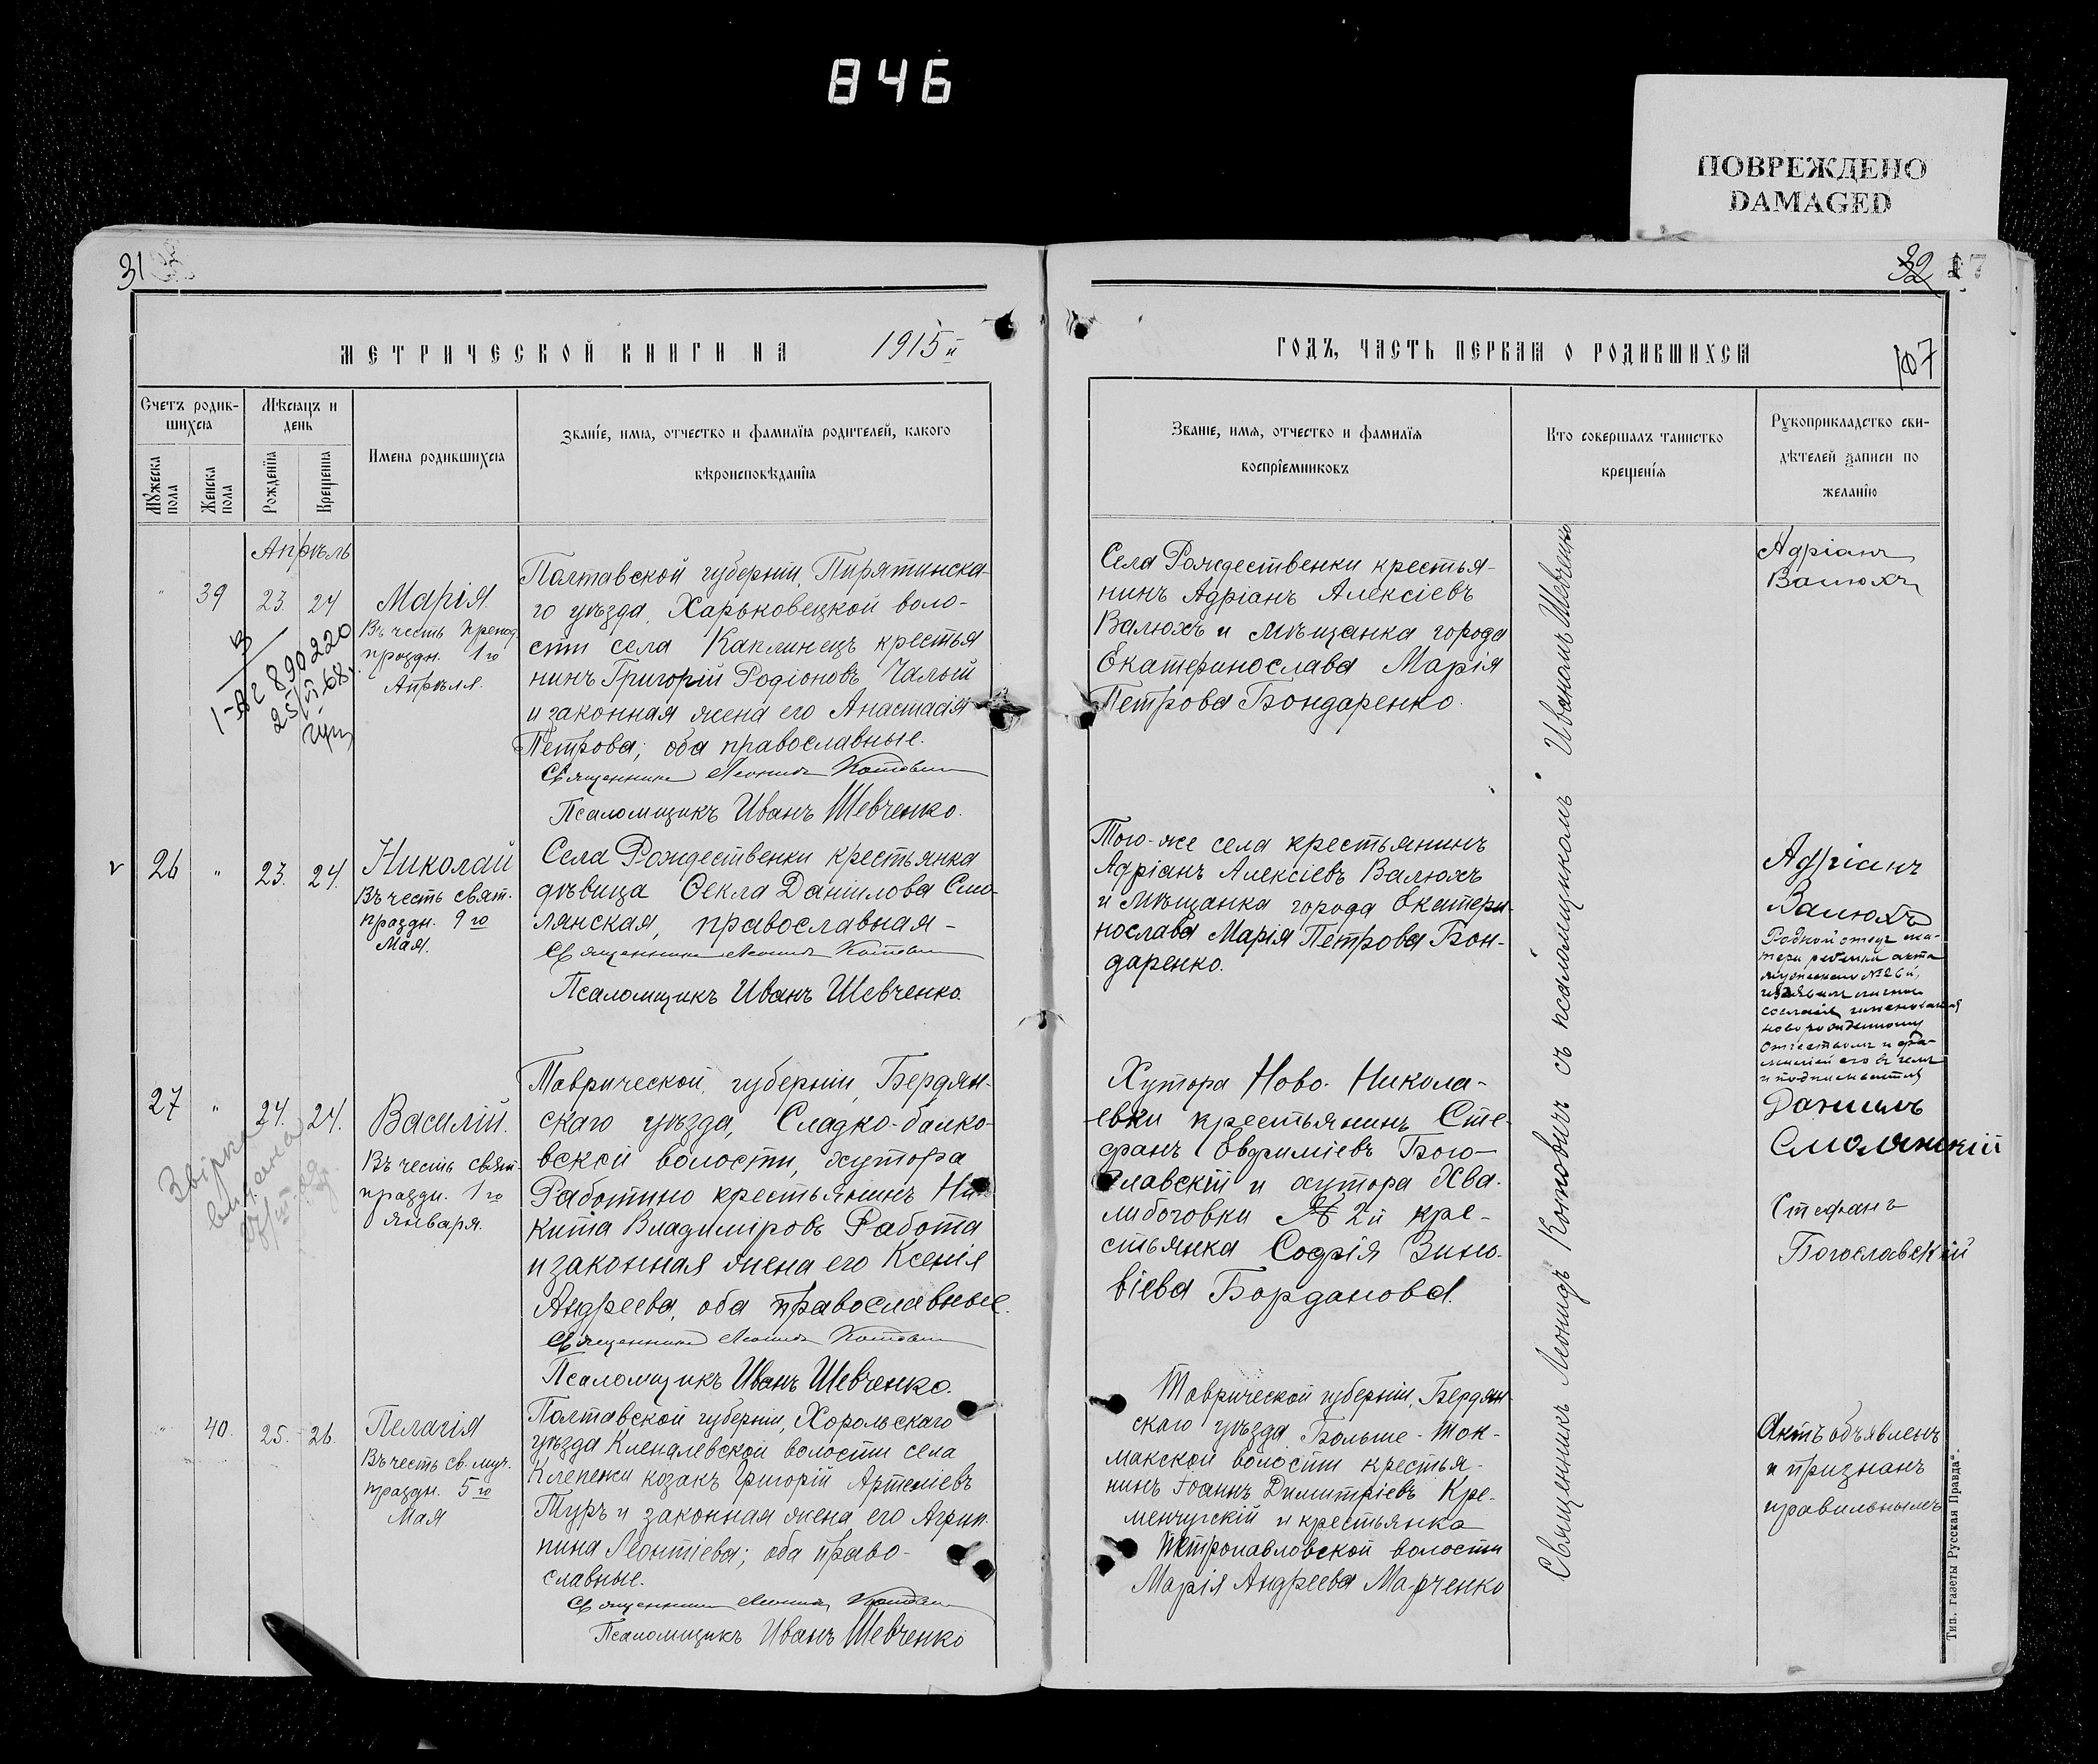 846
ПОВРЕЖДЕНО
DAMAGED
31
32
17
МЕТРИЧЕСКОЙ КНИГИ НА 1915й
ГОДЪ, ЧАСТЬ ПЕРВАЯ О РОДИВШИХСЯ
107
Счетъ родив-
шихся
Мужеска пола
Женска пола
Мѣсяцъ и
день
Рожденія
Крещенія
Имена родившихся
Званіе, имя, отчество и фамилія родителей, какого
вѣроисповѣданія
Званіе, имя, отчество и фамилія
воспріемниковъ
Кто совершалъ таинство
крещенія
Рукоприкладство сви-
дѣтелей записи по
желанію
Апрѣль
" 39 23. 24
Марія.
Въ честь препод.
праздн. 1го
Апрѣля.
890220
Полтавской губерніи, Пирятинска-
го уѣзда, Харьковецкой воло-
сти села Каклинецъ крестья
нинъ Григорій Родіоновъ Чалый
и законная жена его Анастасія
Петрова; оба православные.
Священникъ Леонидъ Котовичъ
Псаломщикъ Иванъ Шевченко.
Села Рождественки крестья-
нинъ Адріанъ Алексіевъ
Валюхъ и мѣщанка города
Екатеринослава Марія
Петрова Бондаренко.
Адріанъ
Валюхъ
26 " 23. 24.
Николай
Въ честь свят.
праздн. 9го
Мая.
Села Рождественки крестьянка
дѣвица Ѳекла Даніилова Смо-
лянская, православная -
Священникъ Леонидъ Котовичъ
Псаломщикъ Иванъ Шевченко.
Того-же села крестьянинъ
Адріанъ Алексіевъ Валюхъ
и мѣщанка города Екатери-
нослава Марія Петрова Бон-
даренко.
Адріанъ
Валюхъ
Родной отецъ ма-
тери ребенка акта
мужескаго №26й,
изъявилъ личное
согласіе именоваться
новорожденному
отчествомъ и фа-
миліей его въ чемъ
и подписывается
Даниилъ
Смолянскій
27 " 24. 24.
Звірка
видана
Василій.
Въ честь свят.
праздн. 1го
января.
Таврической губерніи, Бердян-
скаго уѣзда, Сладко-балко-
вской волости, хутора
Работино крестьянинъ Ни-
кита Владиміровъ Работа
и законная жена его Ксенія
Андреева, оба православные.
Священникъ Леонидъ Котовичъ
Псаломщикъ Иванъ Шевченко.
Хутора Ново-Никола-
евки крестьянинъ Сте-
фанъ Евфиміевъ Бого-
славскій и хутора Хва-
либоговки № 2й кре-
стьянка Софія Зино-
віева Борданова.
Стефанъ
Богославскій
" 40. 25. 26.
Пелагія
Въ честь св. муч.
праздн. 5го
Мая
Полтавской губерніи, Хорольскаго
уѣзда Клепалевской волости села
Клепачи козакъ Григорій Артеміевъ
Туръ и законная жена его Агрип-
пина Леонтіева; оба право-
славные.
Священникъ Леонидъ Котовичъ
Псаломщикъ Иванъ Шевченко
Таврической губерніи, Бердян-
скаго уѣзда Больше-Ток-
макской волости крестья-
нинъ Іоаннъ Димитріевъ Кре-
менчугскій и крестьянка
Петропавловской волости
Марія Андреева Марченко
Актъ объявленъ
и признанъ
правильнымъ
Священникъ Леонидъ Котовичъ съ псаломщикомъ Иваномъ Шевченко
Тип. газеты Русская Правда".